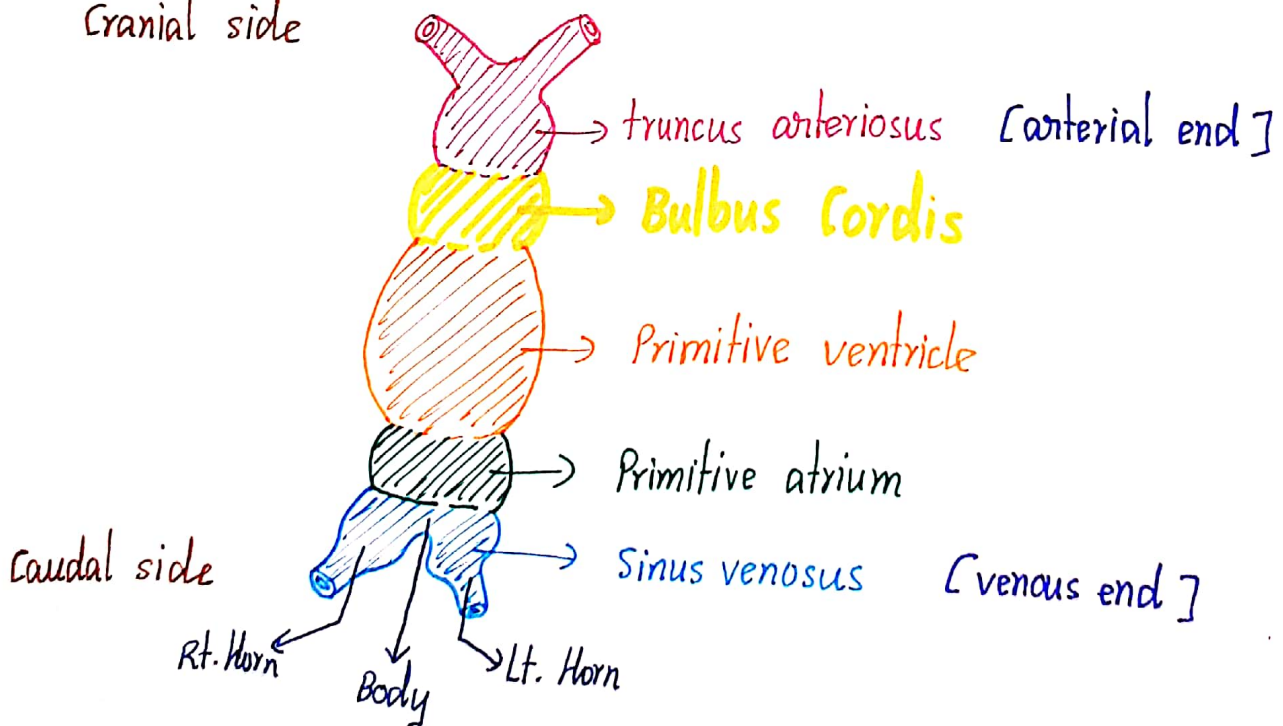 Cranial side
truncus arteriosus [arterial end]
Bulbus Cordis
Primitive ventricle
Primitive atrium
Caudal side
Sinus venosus [venous end]
Rt. Horn
Body
Lt. Horn